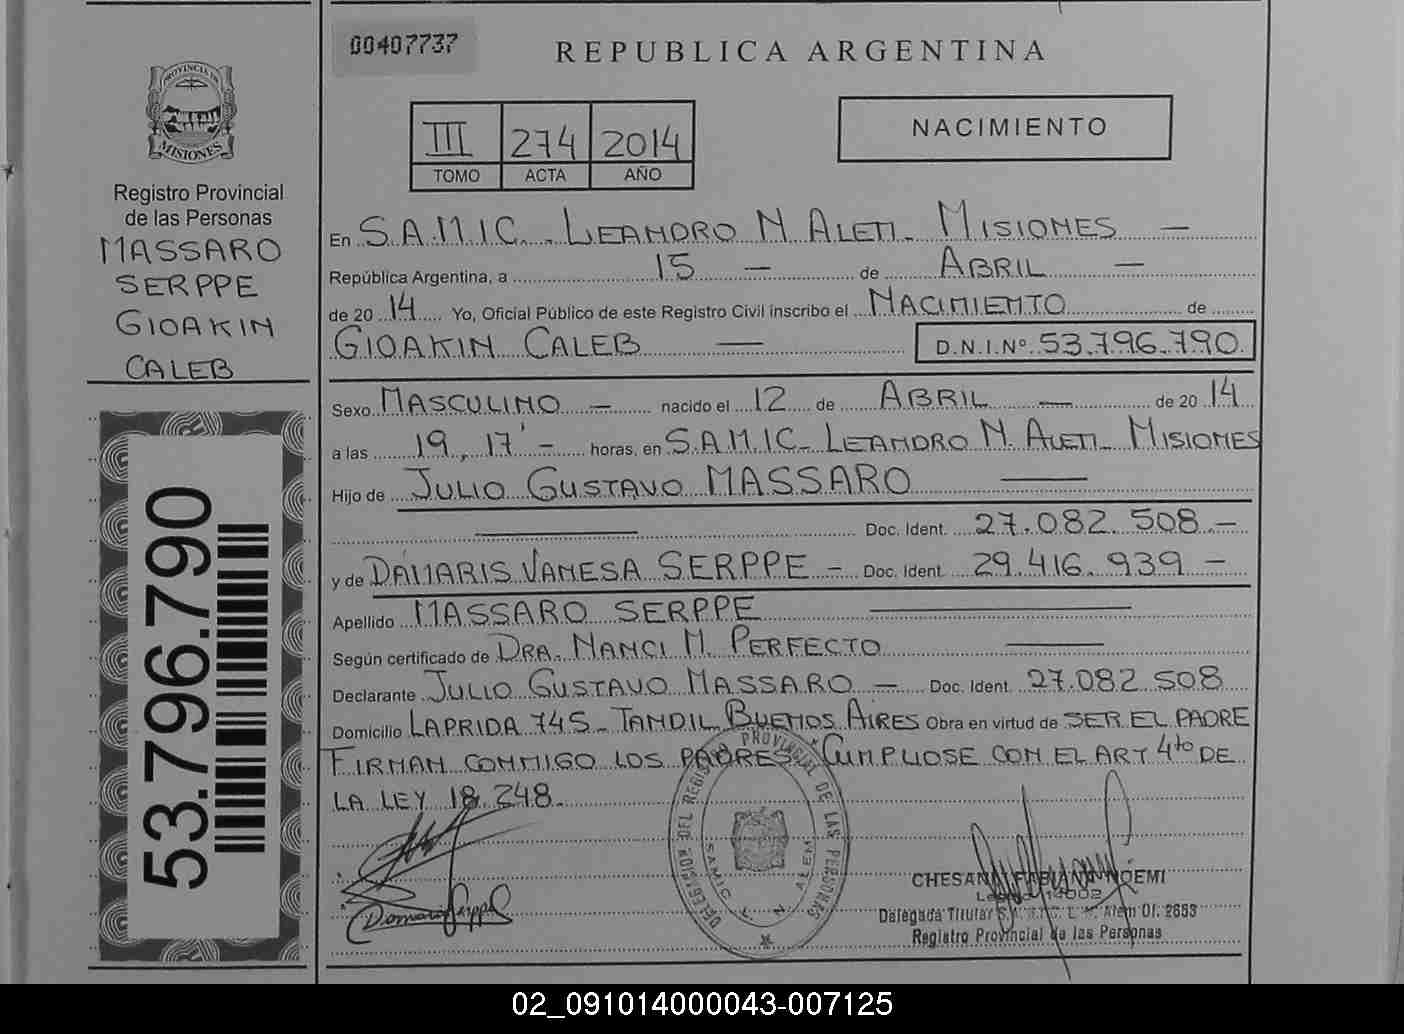 00407737
REPUBLICA ARGENTINA
PROVINCIA DE
MISIONES
III 274 2014
TOMO ACTA AÑO
NACIMIENTO
Registro Provincial
de las Personas
MASSARO
SERPPE
GIOAKIN
CALEB
53.796.790
En S.A.M.I.C. - LEANDRO N. ALEM - MISIONES —
República Argentina, a 15 — de ABRIL —
de 20 14 Yo, Oficial Público de este Registro Civil inscribo el NACIMIENTO de
GIOAKIN CALEB — D.N.I.Nº 53.796.790
Sexo MASCULINO — nacido el 12 de ABRIL — de 20 14
a las 19,17' - horas, en S.A.M.I.C - LEANDRO N. ALEM - MISIONES
Hijo de JULIO GUSTAVO MASSARO —
— Doc. Ident. 27.082.508 -
y de DAMARIS VANESA SERPPE - Doc. Ident. 29.416.939 -
Apellido MASSARO SERPPE —
Según certificado de DRA. NANCI M. PERFECTO —
Declarante JULIO GUSTAVO MASSARO — Doc. Ident. 27.082.508
Domicilio LAPRIDA 745 - TANDIL BUENOS AIRES Obra en virtud de SER EL PADRE
FIRMAN CONMIGO LOS PADRES. CUMPLIOSE CON EL ART 4to DE
LA LEY 18.248.
DELEGACION DEL REGISTRO PROVINCIAL DE LAS PERSONAS
SAMIC L. N. ALEM
Damaris Serppe
CHESANI FABIANA NOEMI
Delegada Titular S.A.M.I.C. L. N. Alem Of. 2653
Registro Provincial de las Personas
02_091014000043-007125